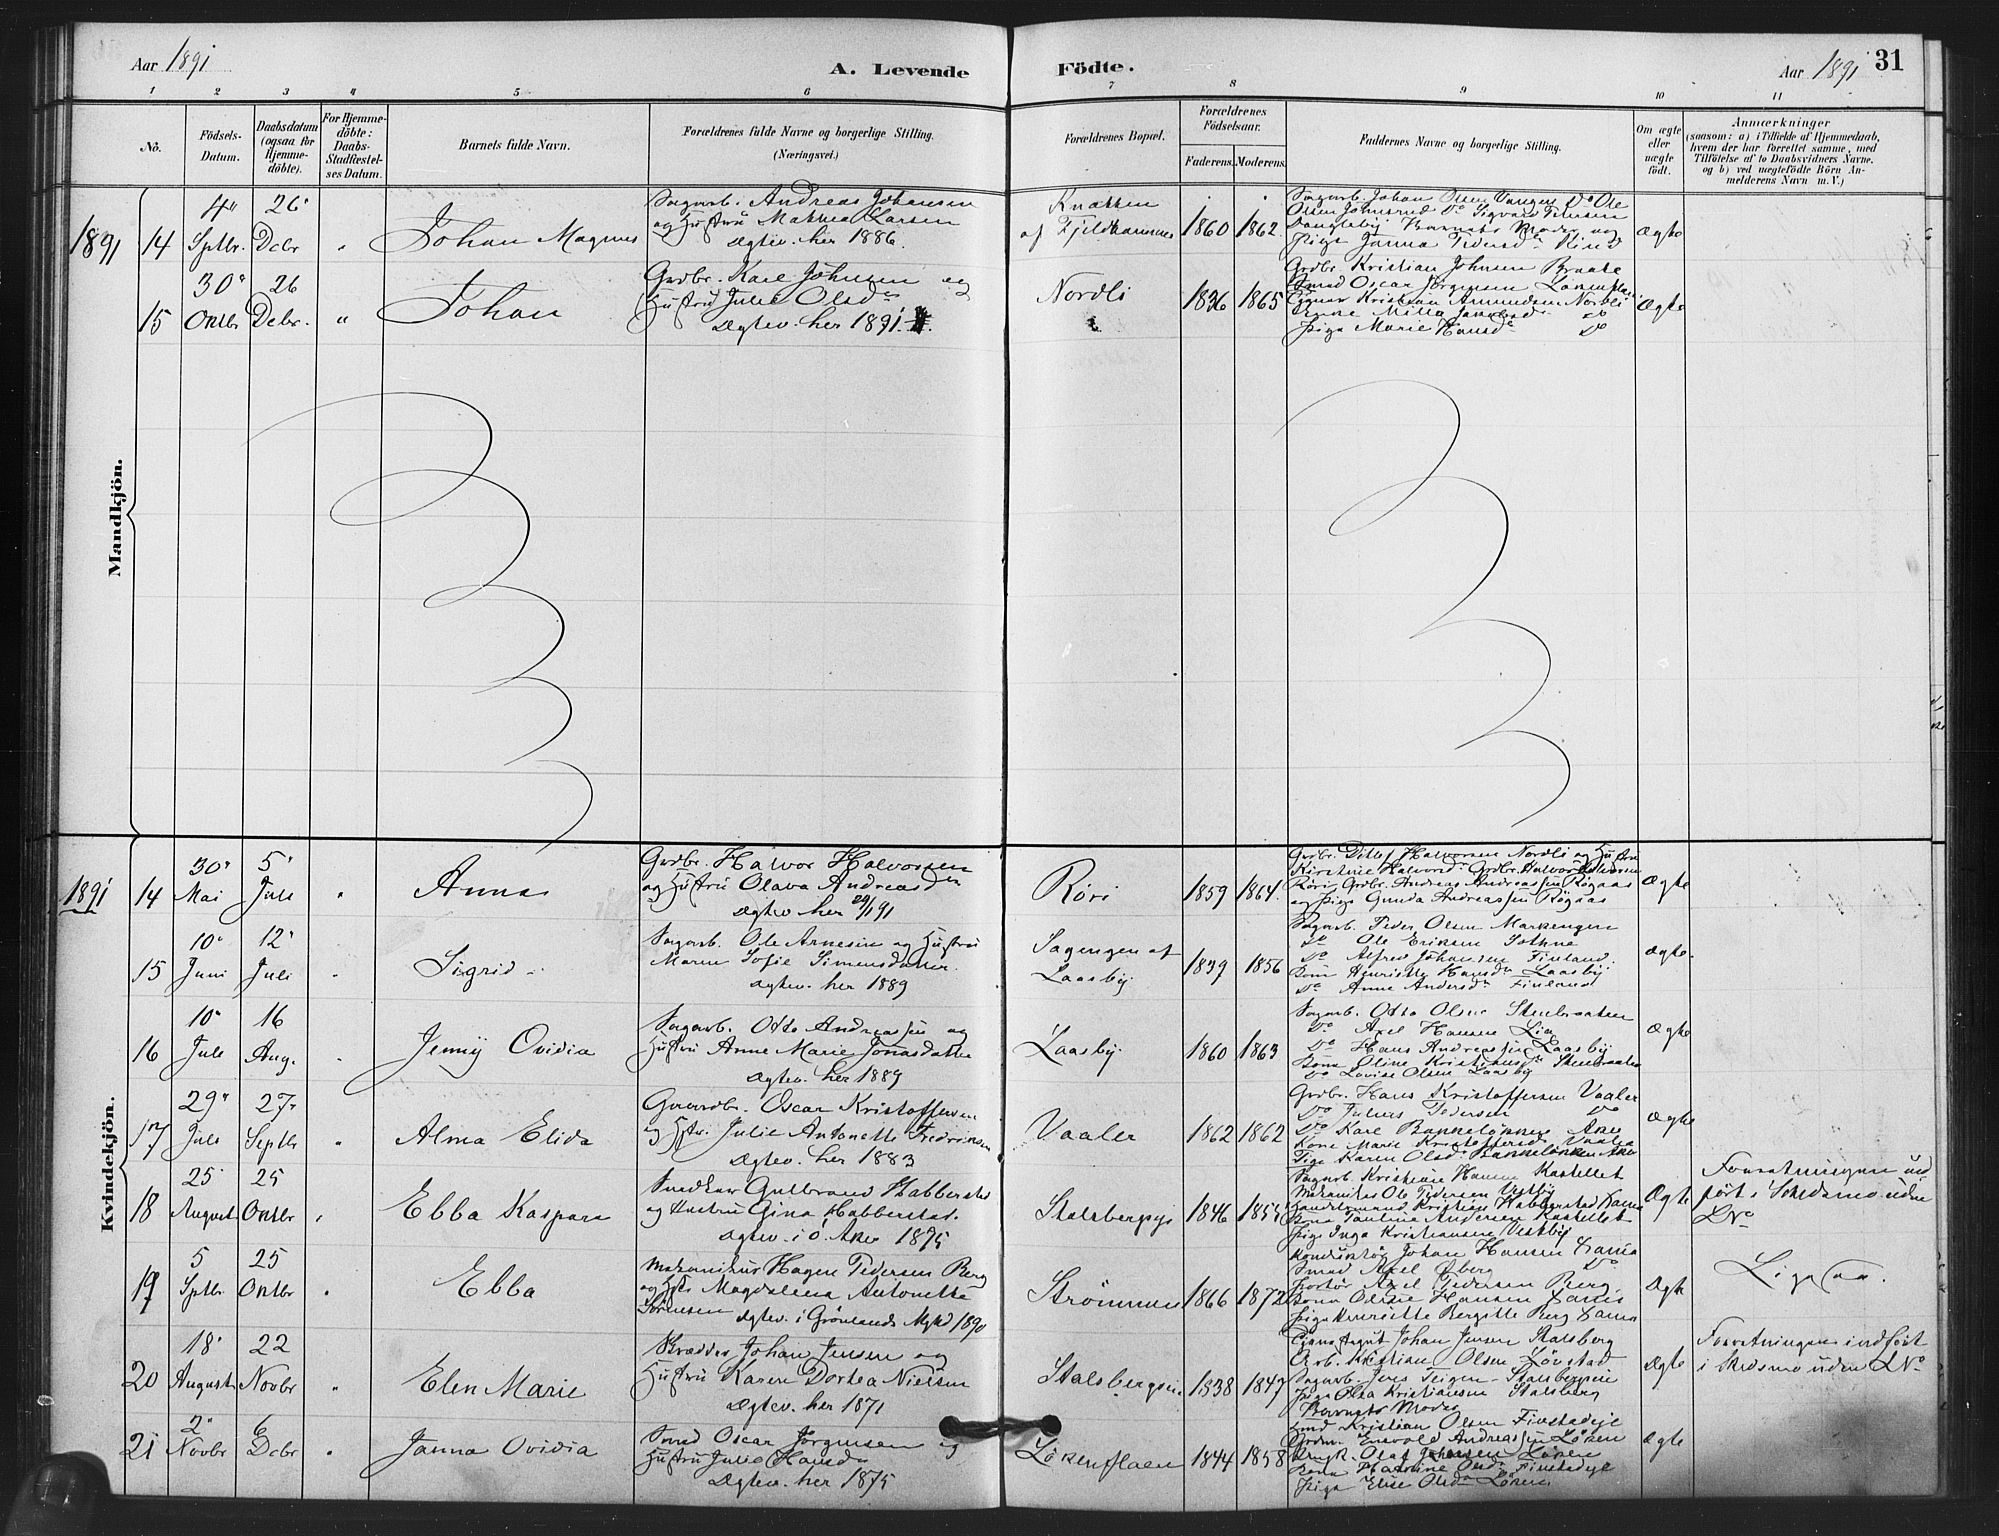 Aar 1891
A. Levende
Födte.
Aar 1891
31
1 2 3 4 5 6 7 8 9 10 11
No.
Födsels-
Datum.
Daabsdatum
(ogsaa for
Hjemme-
döbte).
For Hjemme-
döbte:
Daabs-
Stadfæstel-
ses Datum.
Barnets fulde Navn.
Forældrenes fulde Navne og borgerlige Stilling.
(Næringsvei.)
Forældrenes Bopæl.
Forældrenes
Födselsaar.
Faderens. Moderens.
Faddernes Navne og borgerlige Stilling.
Om ægte
eller
uægte
født.
Anmærkninger
(saasom: a) i Tilfælde af Hjemmedaab,
hvem der har forrettet samme, med
Tilföielse af to Daabsvidners Navne,
og b) ved uægtefödte Börn An-
melderens Navn m. V.)
Mandkjön.
1891
14
4
Sptbr.
26
Debr
"
Johan Magnus
Sagarb. Andreas Johansen
og Hustru Larsen
Ægtev. her 1886.
Knækken
af Fjeldhammer
1860
1862
Sagarb. Johan Olsen
Barnets Moder og
Pige Janna Pedersd.
Ægte
15
30
Oktbr
26
Debr.
"
Johan
Grdbr. Karl Johnsen og
Hustru Julie Olsdr
Ægtev. her 1891.
Nordli
1836
1865
Grdbr. Kristian Johnsen Braate
Smed Oscar Jörgensen Lökenflaen
Kristian Amundsen Nordli
Do
Pige Marie Hansdr Do
Ægte
Kvindekjön.
1891
14
30
Mai
5
Juli
"
Anna
Grdbr. Halvor Halvorsen
og Hustru Olava Andreasdr
Ægtev. her 29/1 91
Röri
1859
1864.
Grdbr. Ditlef Halvorsen Nordli og Hustru
Kirstine Halvorsd. Grdbr. Halvor Halvorsen
Röri Grdbr. Andreas Andreassen Rögaas
og Pige Gunda Andreassen Rögaas
Ægte
15
10
Juni
12
Juli
Sigrid
Sagarb. Ole Arnesen og Hustru
Maren Sofie Simensdatter.
Ægtev. her 1889
Sagengen af
Laasby
1839
1856
Sagarb. Peder Olsen Markengen
Do Ole Eriksen Sothne
Do Alfred Johansen Finland.
Kone Henriette Hansdr Laasby
Do Anne Andersdr Finland
Ægte
16
10
Juli
16
Aug.
Jenny Ovidia
Sagarb. Otto Andreassen og
Hustru Anne Marie Jonasdatter
Ægtev. her 1889
Laasby
1860
1863
Sagarb. Otto Olsen Stenbraaten
Do Axel Hansen Lia
Do Hans Andreassen Laasby
Kone Oline Kristiansdr Stenbraaten
Do Lovise Olsen Laasby
Ægte
17
29
Juli
27
Septbr
"
Alma Elida
Gaardbr. Oscar Kristoffersen
og Hstr. Julie Antonette Fredriksen
Ægtev. her 1883
Vaaler
1862
1862
Grdbr. Hans Kristoffersen Vaaler
Do Julius Pedersen Do
Do Karl Bakkelökken Aker
Kone Marie Kristoffersd Vaaler
Pige Karen Olsdr Bakkelökken Aker
Ægte
18
25
August
25
Oktbr
Ebba Kaspara
Snedker Gulbrand Habberstad
og Hustru Gina Habberstad.
Ægtev. i Ö. Aker 1875
Stalsbergsys
1846
Sagarb. Kristian Hansen Kastellet
Maskinist Ole Pedersen Vestby
Handelsmand Kristian Habberstad
Kone Pauline Andersen Kastellet
Pige Inga Kristiansen Vestby
Ægte
Forretningen ind
fört i Skedsmo uden
No
19
5
Sptbr
25
Oktbr
Ebba
Maskinist Hagen Pedersen Berg
og Hst. Magdalena Antonette
Sörensen Ægtev. i Grönlands Mghd 1890
Strömmen
1866
1872
Konduktör Johan Hansen
Smed Axel Öberg Do
Axel Pedersen Berg
Kone Oline Hansen
Pige Henriette Bergitte Berg
Ægte
Ligesaa.
20
18
August
22
Novbr
"
Elen Marie
Skrædder Johan Jensen og
Hustru Karen Dortea Nielsen
Ægtev. her 1871
Stalsbergsin
1838
1847
Johan Jensen Stalsberg
Arb. Kristian Olsen Lövstad
Sagarb. Jens Teigen Stalsbergsen
Pige Olga Kristiansen Stalsberg
Barnets Moder
Ægte
Forretningen indfört
i Skedsmo uden No
21
2
Novbr
6
Debr
"
Janna Ovidia
Smed Oscar Jörgensen og
Hustru Julie Hansdr
Ægtev. her 1875
Lökenflaen
1844
1858
Smed Kristian Olsen Finstadeje
Enevold Andreassen Löken
Olaf Johansen Löken
Kone Katrine Olsdr Finstadeje
Pige Elise Olsdr Löken
Ægte